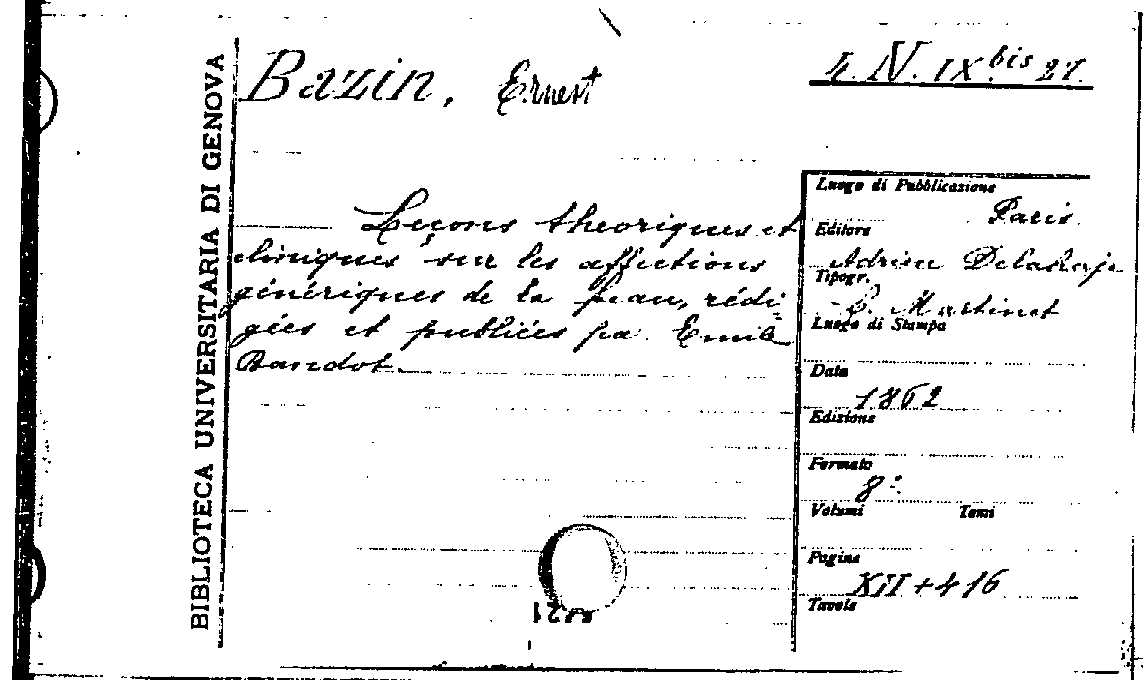 BIBLIOTECA UNIVERSITARIA DI GENOVA
Bazin, Ernest
4. N. IX.bis 27.
Leçons theoriques et
cliniques sur les affections
génériques de la peau, rédi-
gées et publiées pa. Emile
Baudot.
Luogo di Pubblicazione
Paris
Editore
Adrien Delahaye
Tipogr.
E. Martinet
Luogo di Stampa
Data
1862
Edizione
Formato
8°
Volumi Tomi
Pagine
XII + 416
Tavole